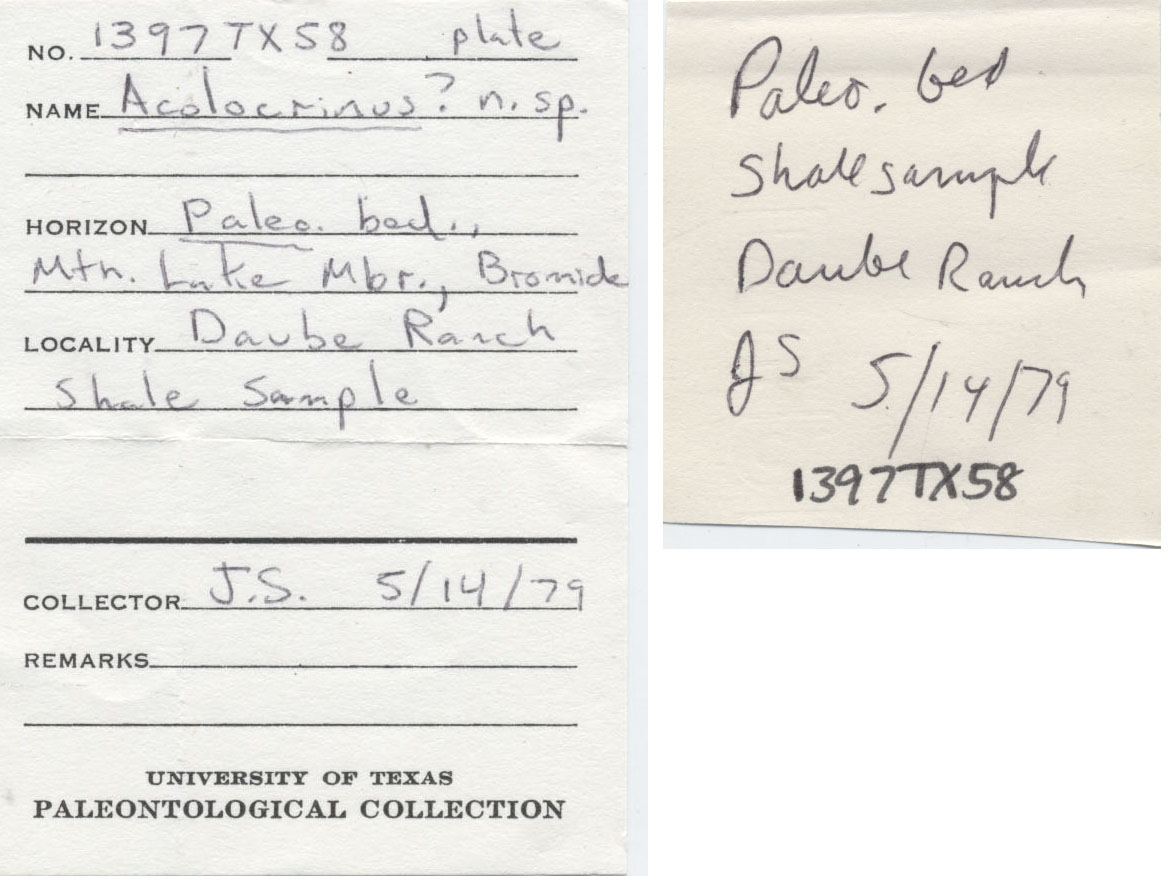 NO. 1397TX58 plate
NAME Acolocrinus? n. sp.
HORIZON Paleo. bed.,
Mtn. Lake Mbr., Bromide
LOCALITY Daube Ranch
Shale Sample
COLLECTOR J.S. 5/14/79
REMARKS
UNIVERSITY OF TEXAS
PALEONTOLOGICAL COLLECTION
Paleo. bed
Shale sample
Daube Ranch
JS 5/14/79
1397TX58